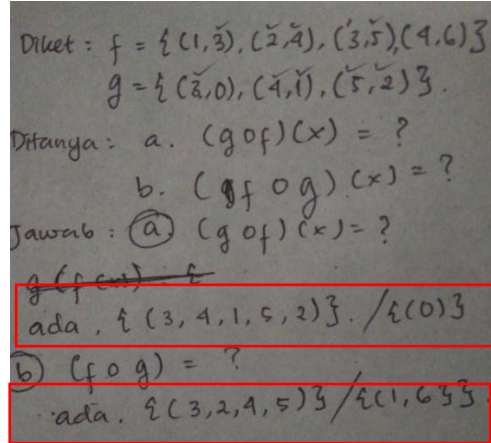 Diket : f = {(1,3), (2,4), (3,5), (4,6)}
g = {(3,0), (4,1), (5,2)}.
Ditanya : a. (g o f) (x) = ?
b. (f o g) (x) = ?
Jawab : (a) (g o f) (x) = ?
g (f (x)) {
ada, {(3, 4, 1, 5, 2)}. / {(0)}
(b) (f o g) = ?
ada, {(3, 2, 4, 5)} / {(1, 6}}.